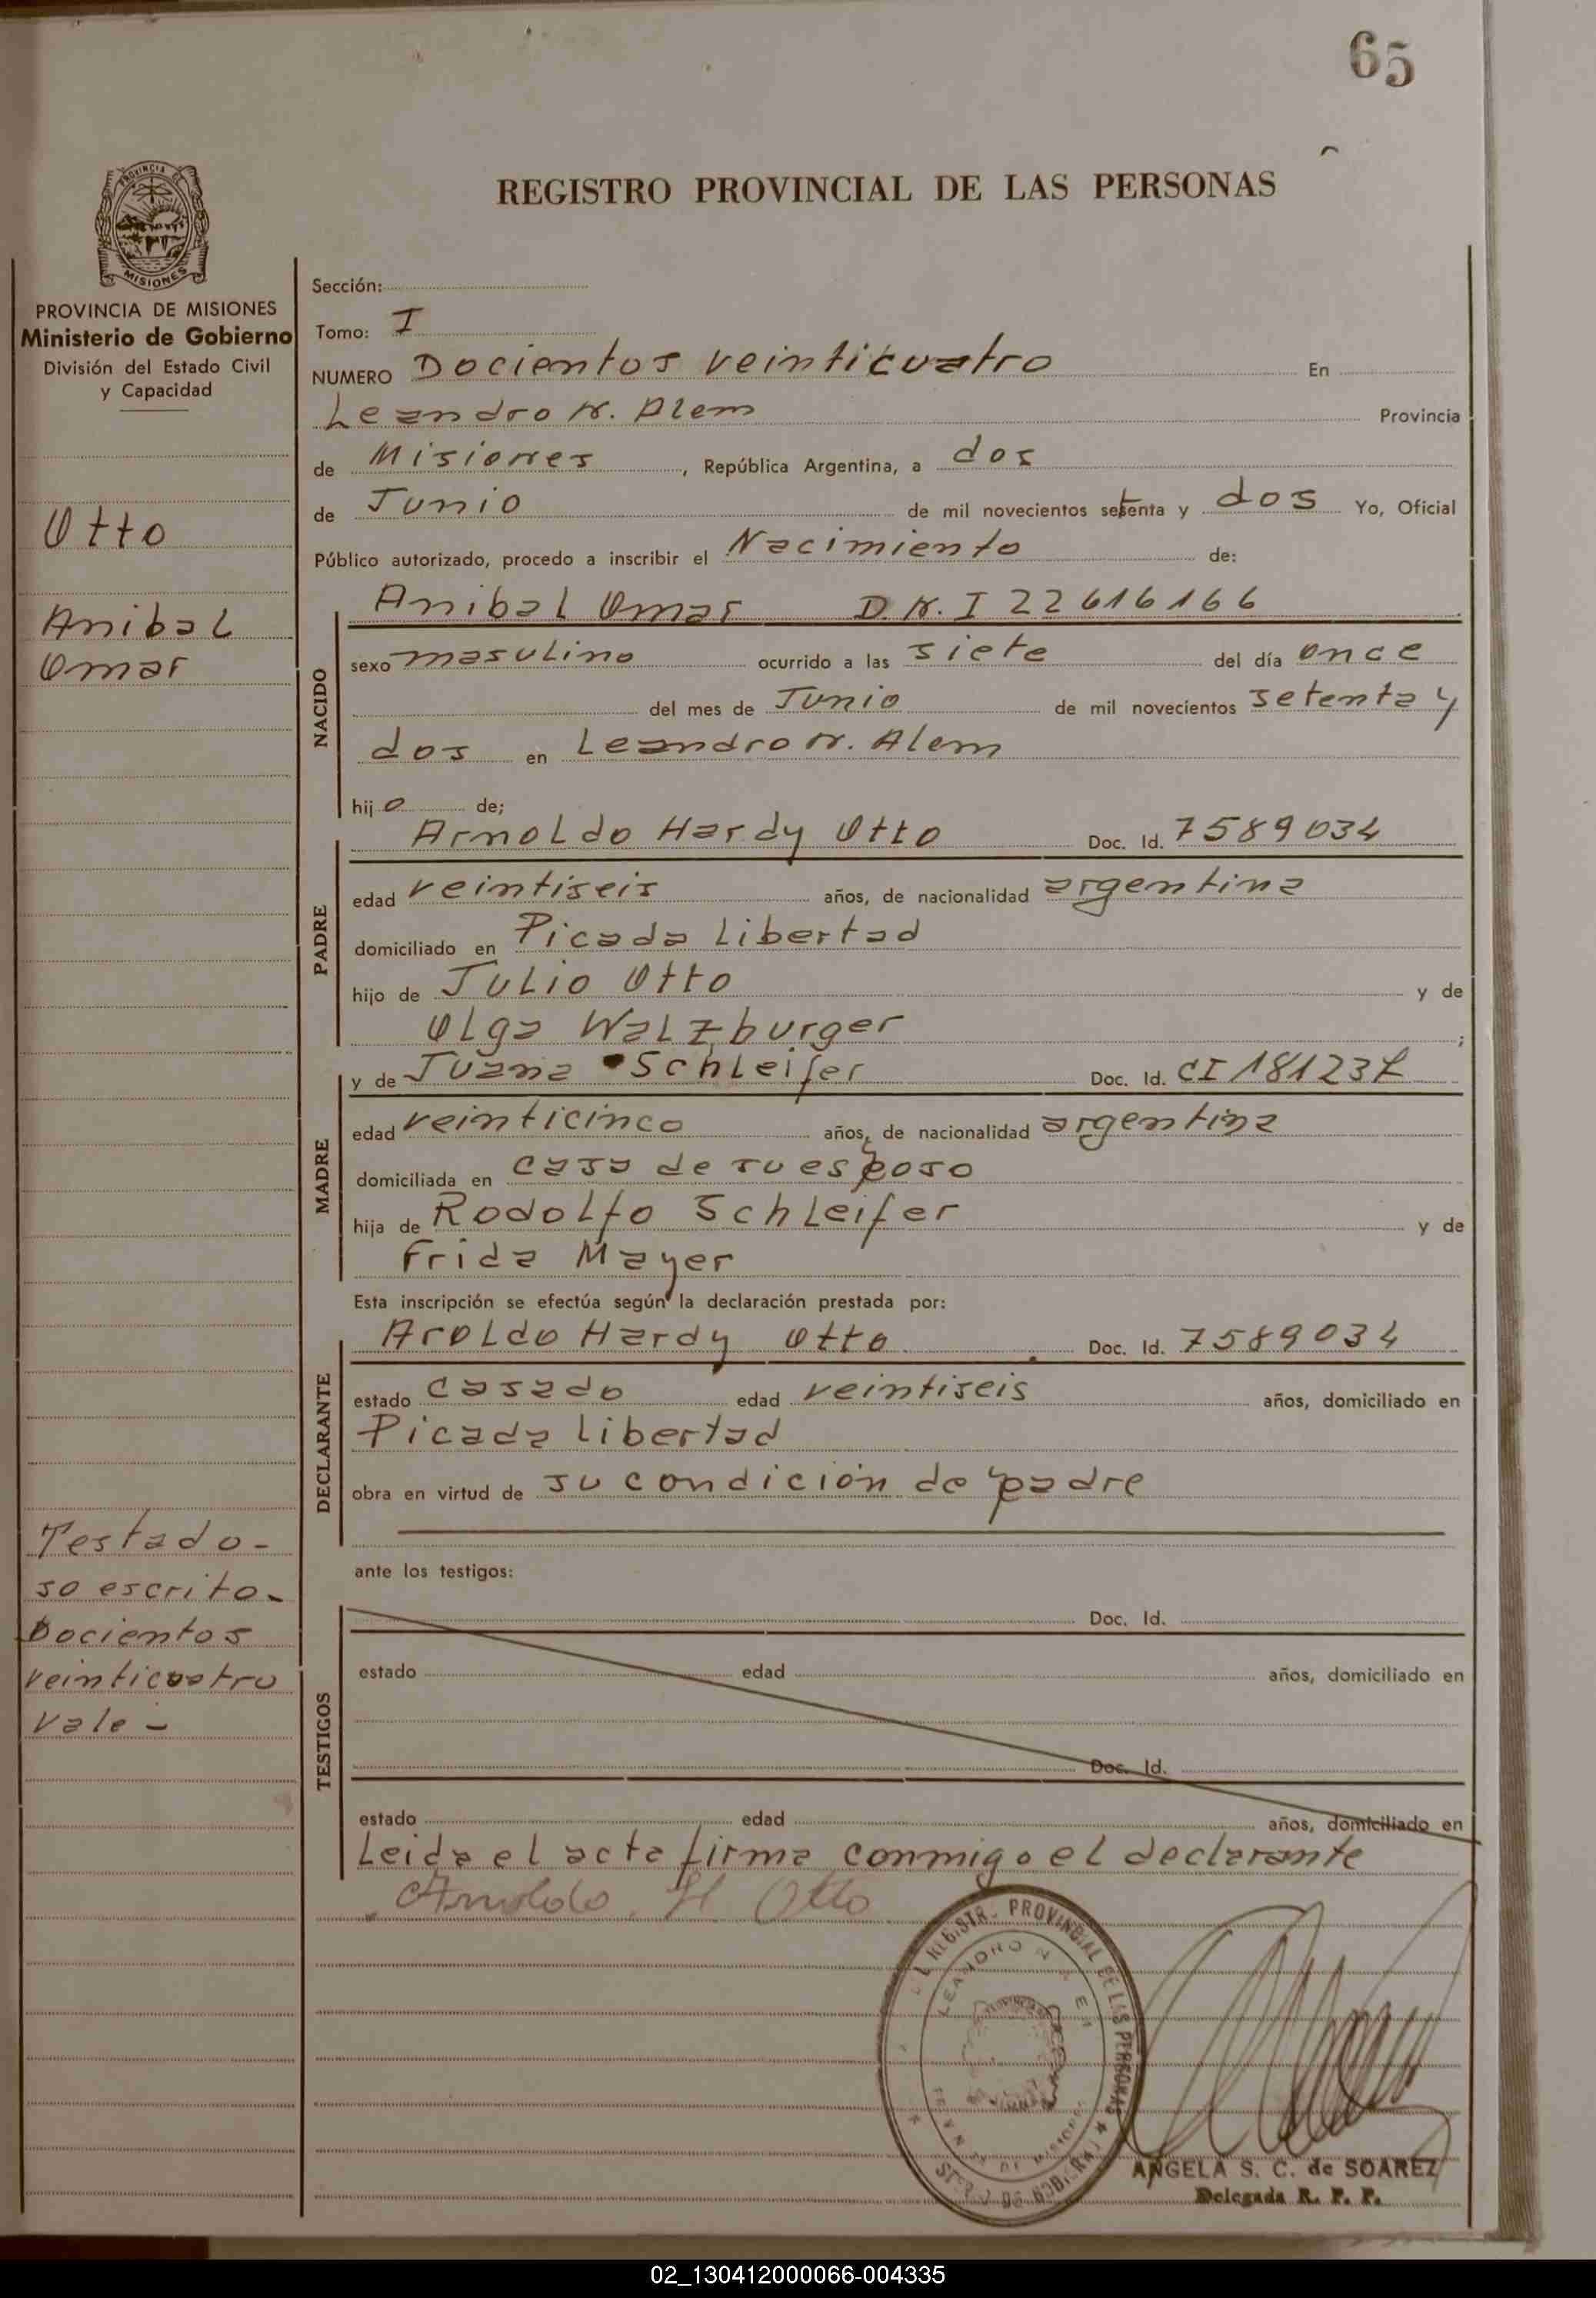 65
REGISTRO PROVINCIAL DE LAS PERSONAS
PROVINCIA
MISIONES
PROVINCIA DE MISIONES
Ministerio de Gobierno
División del Estado Civil
y Capacidad
Otto
Anibal
Omar
Testado-
so escrito-
Docientos
veinticuatro
Vale-
Sección:
Tomo: I
NUMERO Docientos veinticuatro En
Leandro N. Alem Provincia
de Misiones, República Argentina, a dos
de Junio de mil novecientos setenta y dos Yo, Oficial
Público autorizado, procedo a inscribir el Nacimiento de:
NACIDO
Anibal Omar D.N.I 22616166
sexo masulino ocurrido a las siete del día once
del mes de Junio de mil novecientos setenta y
dos en Leandro N. Alem
hijo de;
PADRE
Arnoldo Hardy Otto Doc. Id. 7589034
edad veintiseis años, de nacionalidad argentina
domiciliado en Picada Libertad
hijo de Julio Otto y de
Olga Walzburger ;
MADRE
y de Juana Schleifer Doc. Id. CI 181237
edad veinticinco años, de nacionalidad argentina
domiciliada en casa de su esposo
hija de Rodolfo Schleifer y de
Frida Mayer
Esta inscripción se efectúa según la declaración prestada por:
DECLARANTE
Aroldo Hardy Otto Doc. Id. 7589034
estado casado edad veintiseis años, domiciliado en
Picada Libertad
obra en virtud de su condición de padre
ante los testigos:
TESTIGOS
Doc. Id.
estado edad años, domiciliado en
Doc. Id.
estado edad años, domiciliado en
Leida el acta firma conmigo el declarante
Arnoldo H Otto
REGISTR. PROVINCIAL DE LAS PERSONAS
LEANDRO N
ANGELA S. C. de SOAREZ
Delegada R. P. P.
02_130412000066-004335